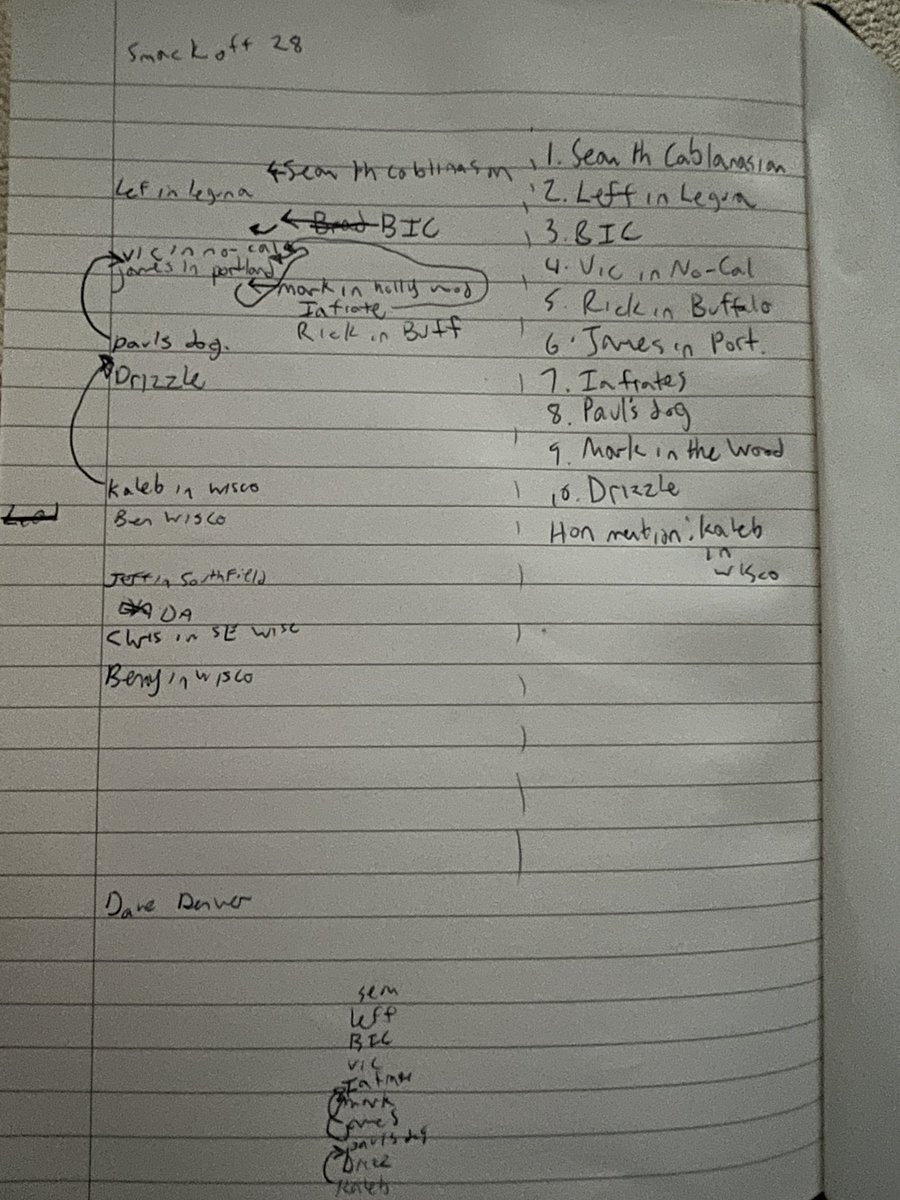 Smack off 28
Sean th coblinasin
Lef in leguna
Brad BIC
vic in no-cal
James in portland
mark in holly wood
Infrate
Rick in Buff
paul's dog.
Drizzle
Kaleb in wisco
Ben Wisco
Jeff in Southfield
DA
Chris in SE Wisc
Benny in wisco
Dave Denver
1. Sean th Cablanasian
2. Leff in Legua
3. BIC
4. Vic in No-Cal
5. Rick in Buffalo
6. James in Port.
7. Infrates
8. Paul's dog
9. Mark in the Wood
10. Drizzle
Hon mention: Kaleb
in
wisco
sean
leff
BIC
vic
mark
James
paul's dog
Drizz
Kaleb